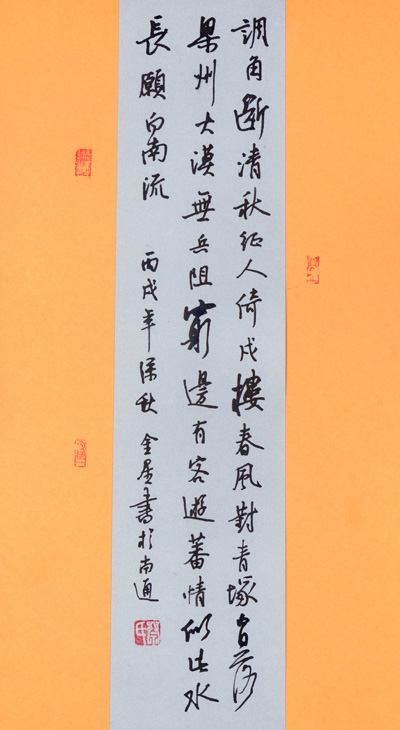 調角斷清秋征人倚戍樓春風對青塚白日落
梁州大漠無兵阻窮邊有客遊蕃情似此水
長願向南流 丙戌年深秋 金書於南通